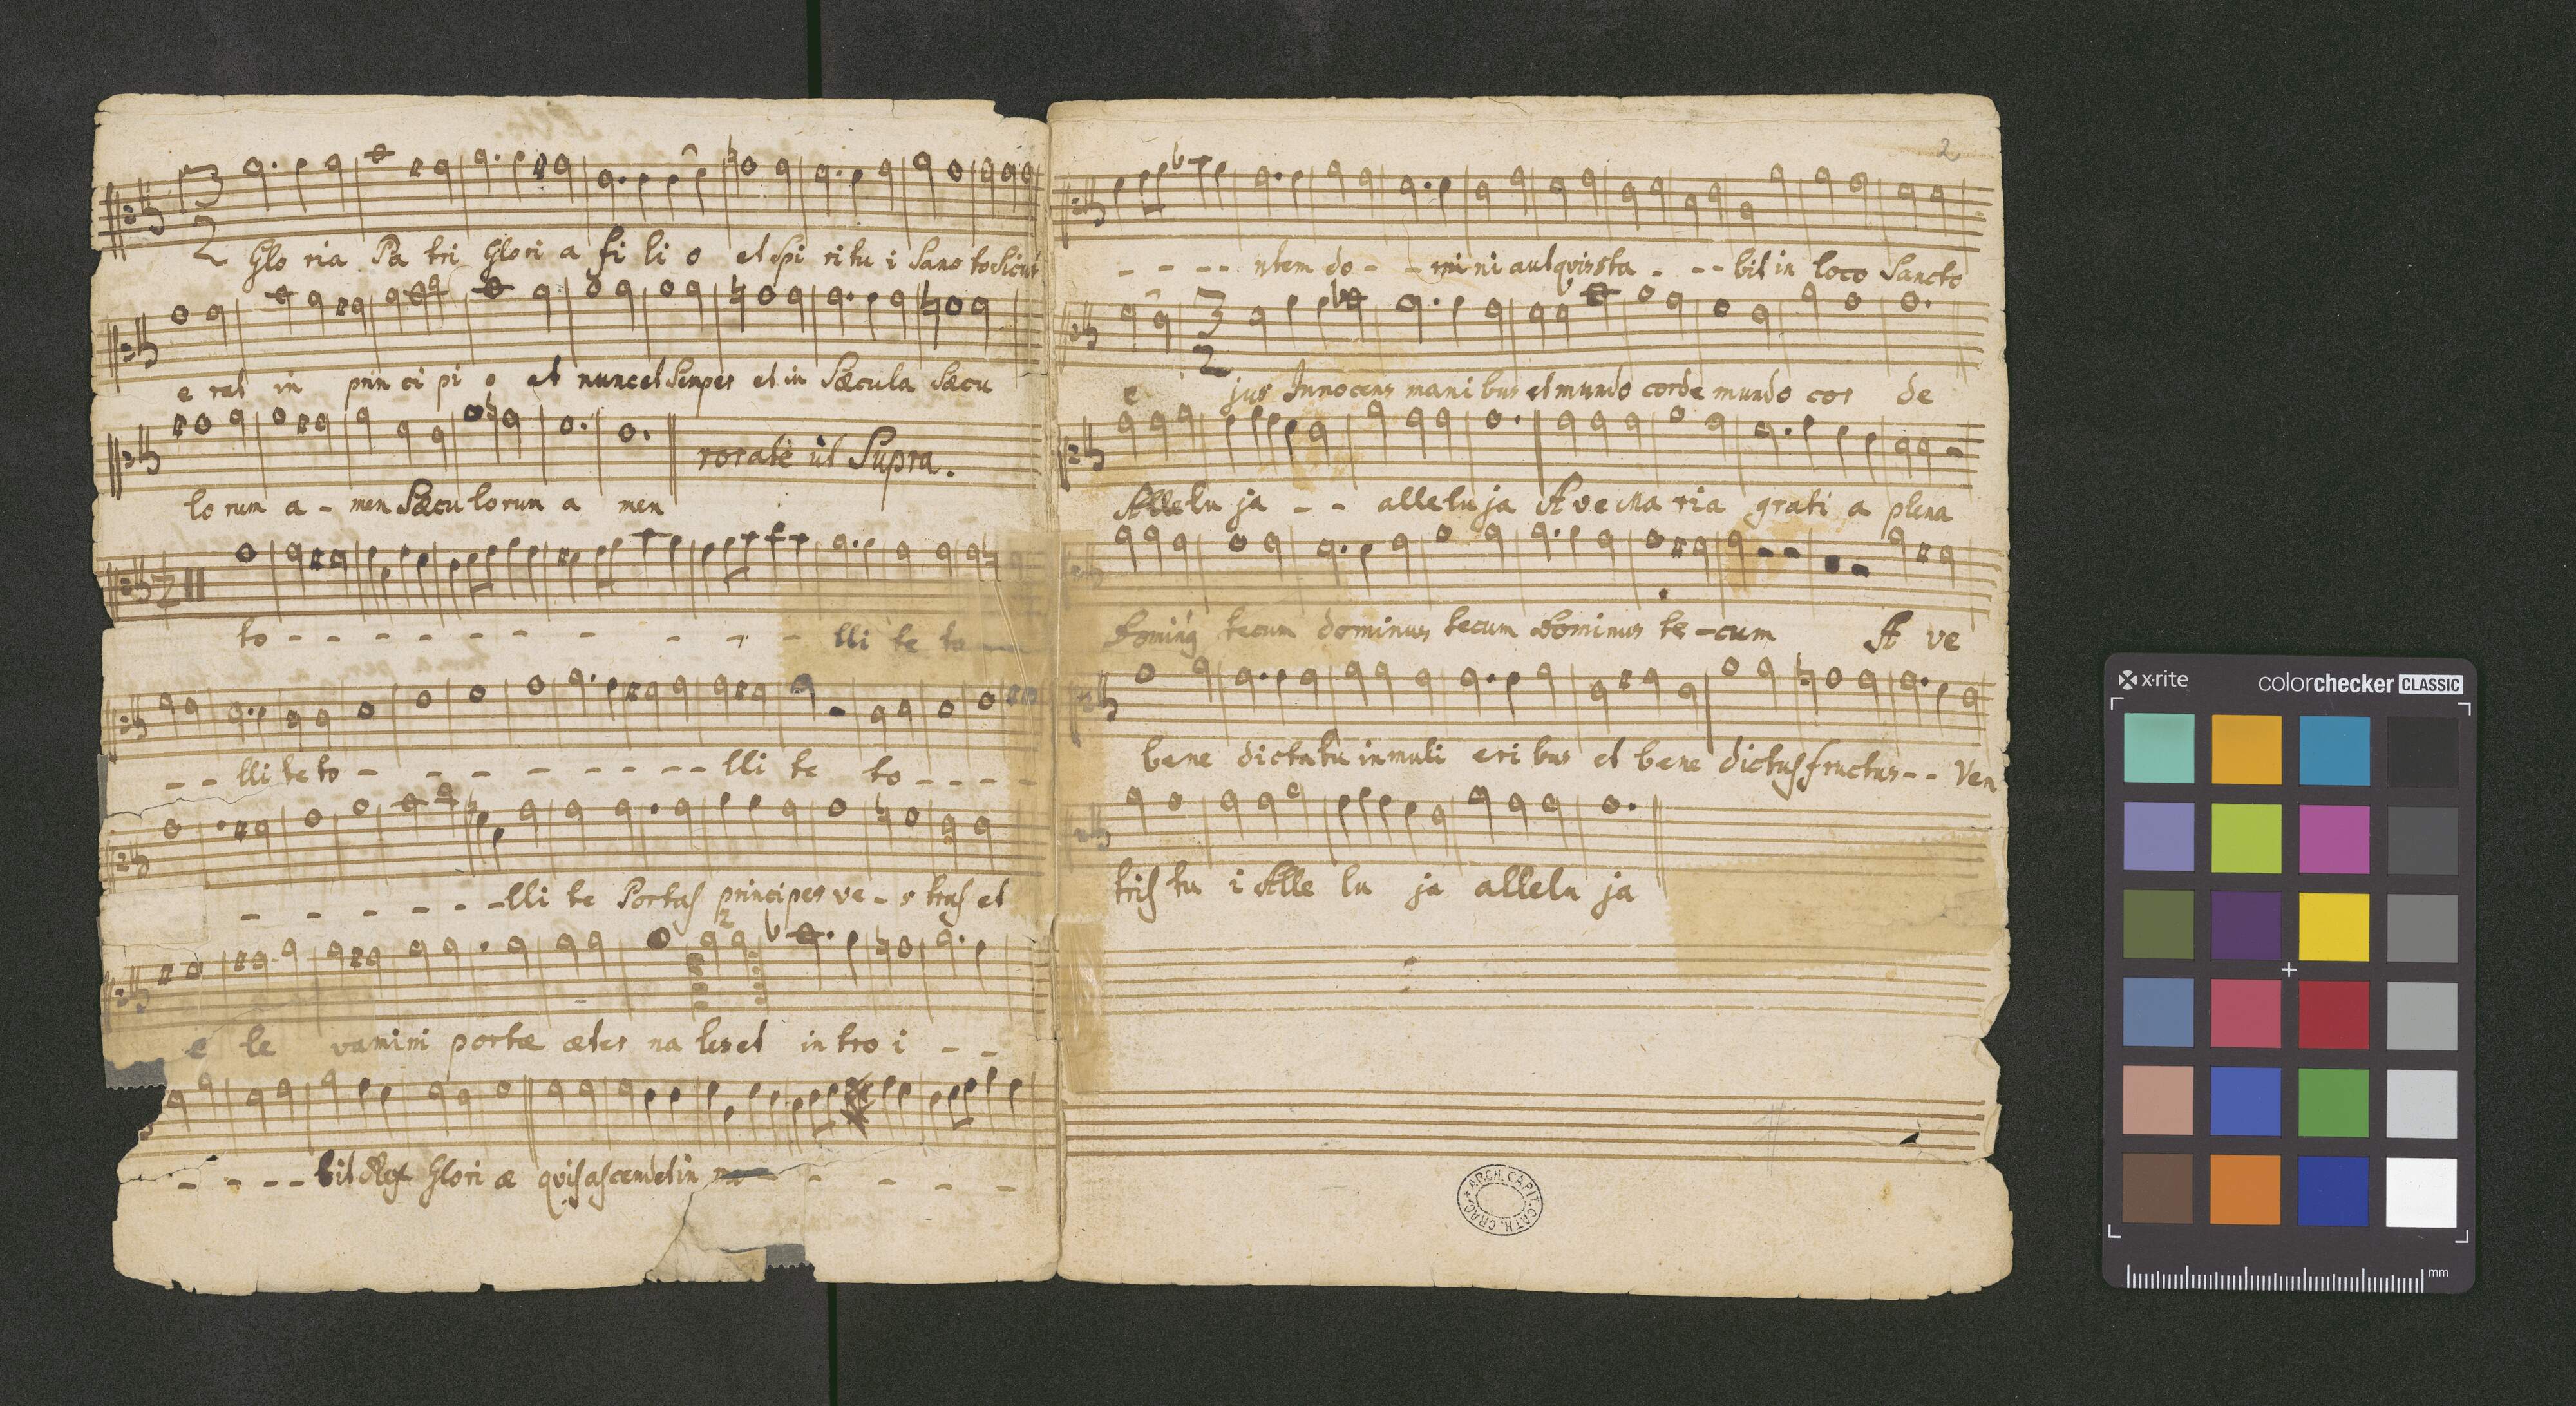 3
2
Glo ria Pa tri Glori a fi li o et Spi ritu i Sanc to Sicut
e rat in prin ci pi o et nunc et Semper et in Sæcula Sæcu
lo rum a - men Sæcu lorum a men
rorate ùt Supra.
to - - - - - - - - - - lli te to
- - lli te to - - - - - - - - lli te to - - - -
- - - - - - - lli te Portas principes ve - s tras et
e le vamini portæ æter na les et in tro i - -
- - - - bit Rex Glori æ quis ascendet in - - - -
2
- - - - ntem do - - mi ni aut quis sta - - - bit in loco Sancto
3
2
e jus Innocens mani bus et mundo corde mundo cor de
Allelu ja - - alleluja A ve Ma ria grati a plena
tecum dominus tecum Dominus te - cum A ve
bene dicta tu in muli eri bus et bene dictus fructus - - Ven
tris tu i Alle lu ja allelu ja
ARCH. CAPIT. CATH. CRAC.
x·rite
colorchecker CLASSIC
mm